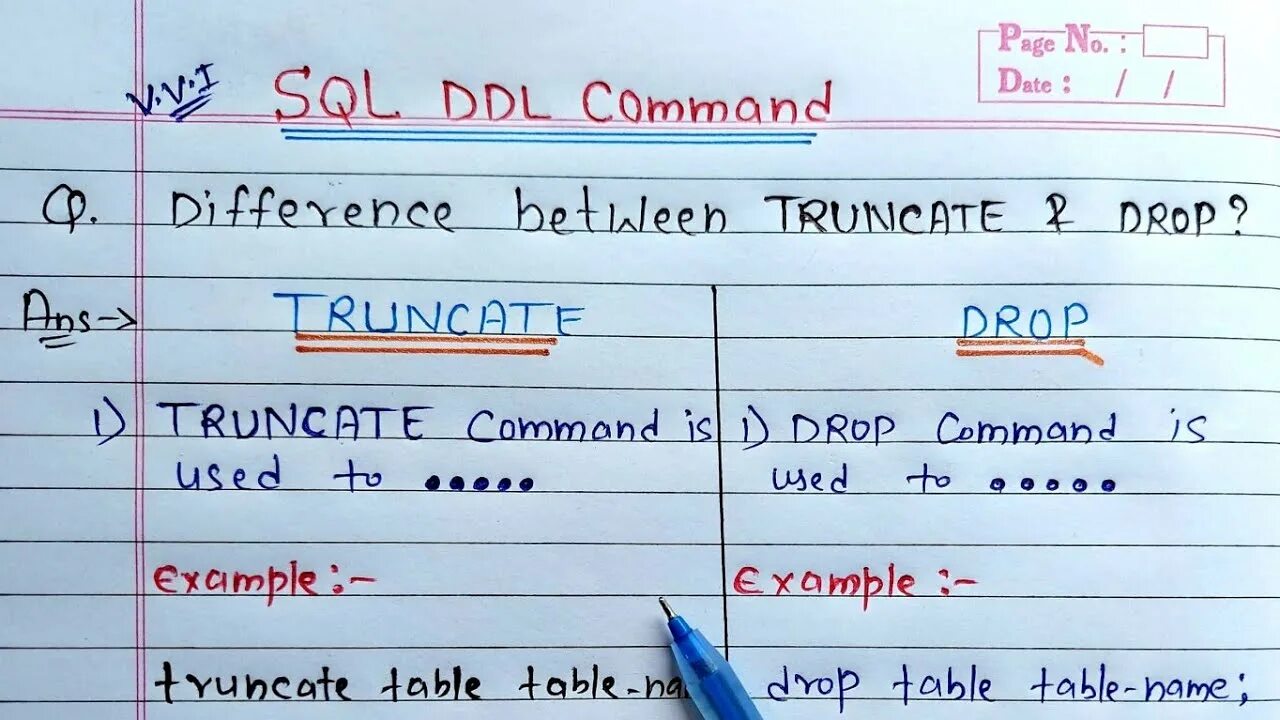 Page No. :
Date : / /
V.V.I SQL DDL Command
Q. Difference between TRUNCATE & DROP?
Ans→ TRUNCATE DROP
1) TRUNCATE Command is
used to •••••
1) DROP Command is
used to •••••
Example:-
Example :-
truncate table
drop table table-name;